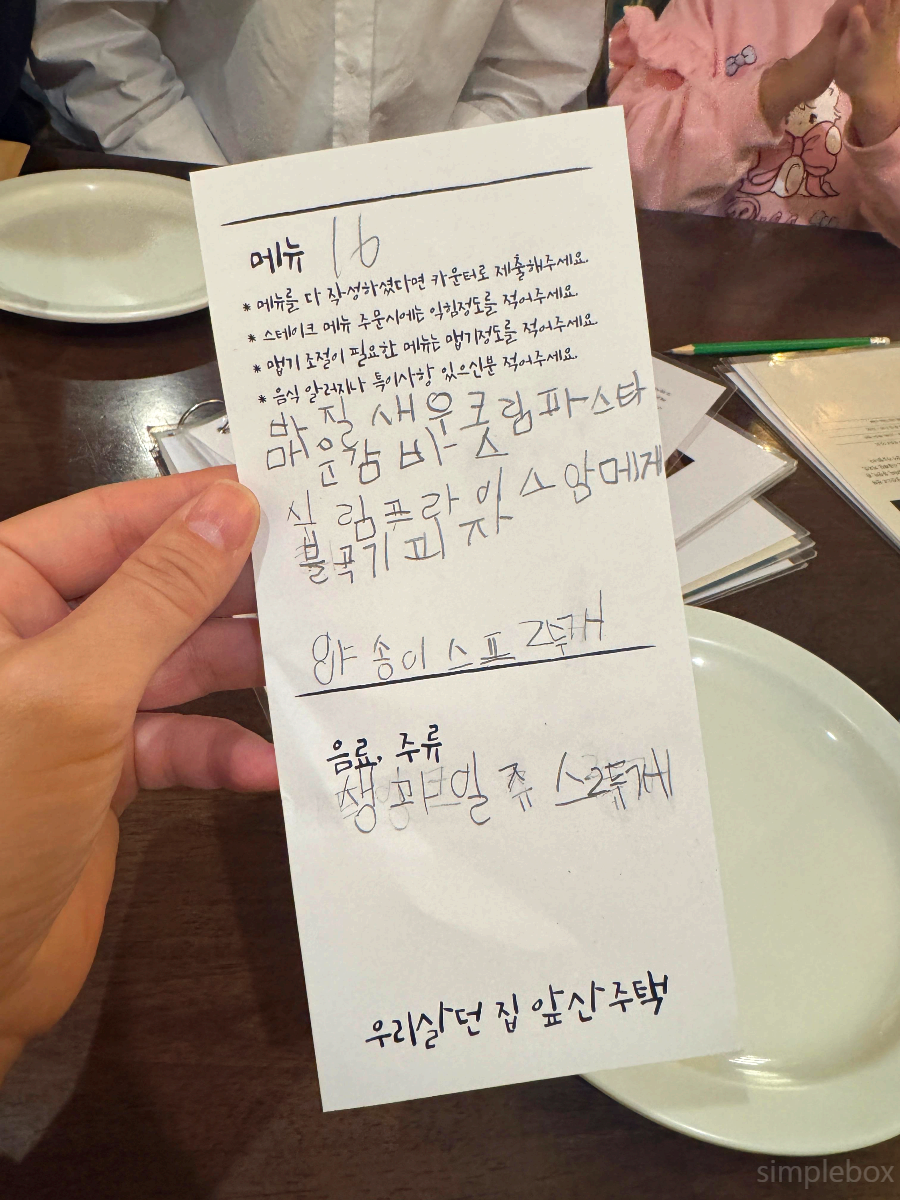 메뉴 16
* 메뉴를 다 작성하셨다면 카운터로 제출해주세요.
* 스테이크 메뉴 주문시에는 익힘정도를 적어주세요.
* 맵기 조절이 필요한 메뉴는 맵기정도를 적어주세요.
* 음식 알러지나 특이사항 있으신분 적어주세요.
바질새우크림파스타
마운감바스
쉬림프라이스
불고기피자
양송이스프2
음료, 주류
생과일쥬스2
우리살던 집 앞산주택
simplebox